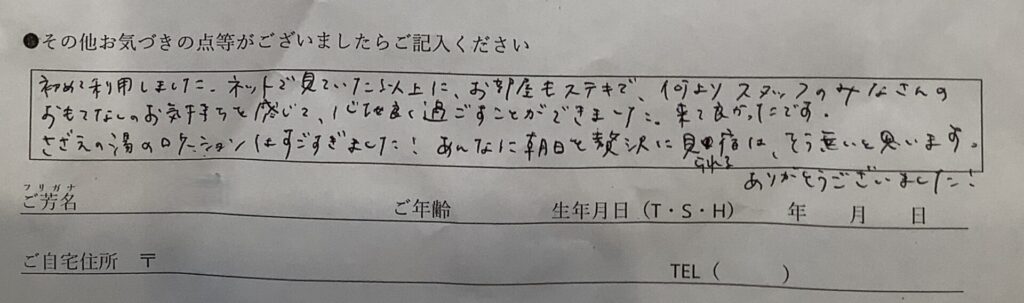 ●その他お気づきの点等がございましたらご記入ください
初めて利用しました。ネットで見ていた以上に、お部屋もステキで、何よりスタッフのみなさんの
おもてなしのお気持ちを感じて、心地良く過ごすことができました。来て良かったです。
さざえの湯のロケーションはすごすぎました！あんなに朝日を贅沢に見られる宿は、そう無いと思います。
ありがとうございました！
フリガナ
ご芳名 ご年齢 生年月日（T・S・H） 年 月 日
ご自宅住所 〒 TEL（ ）